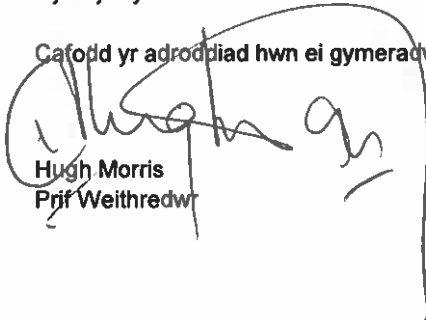 Cafodd yr adroddiad hwn ei
Hugh Morris
Prif Weithredwr